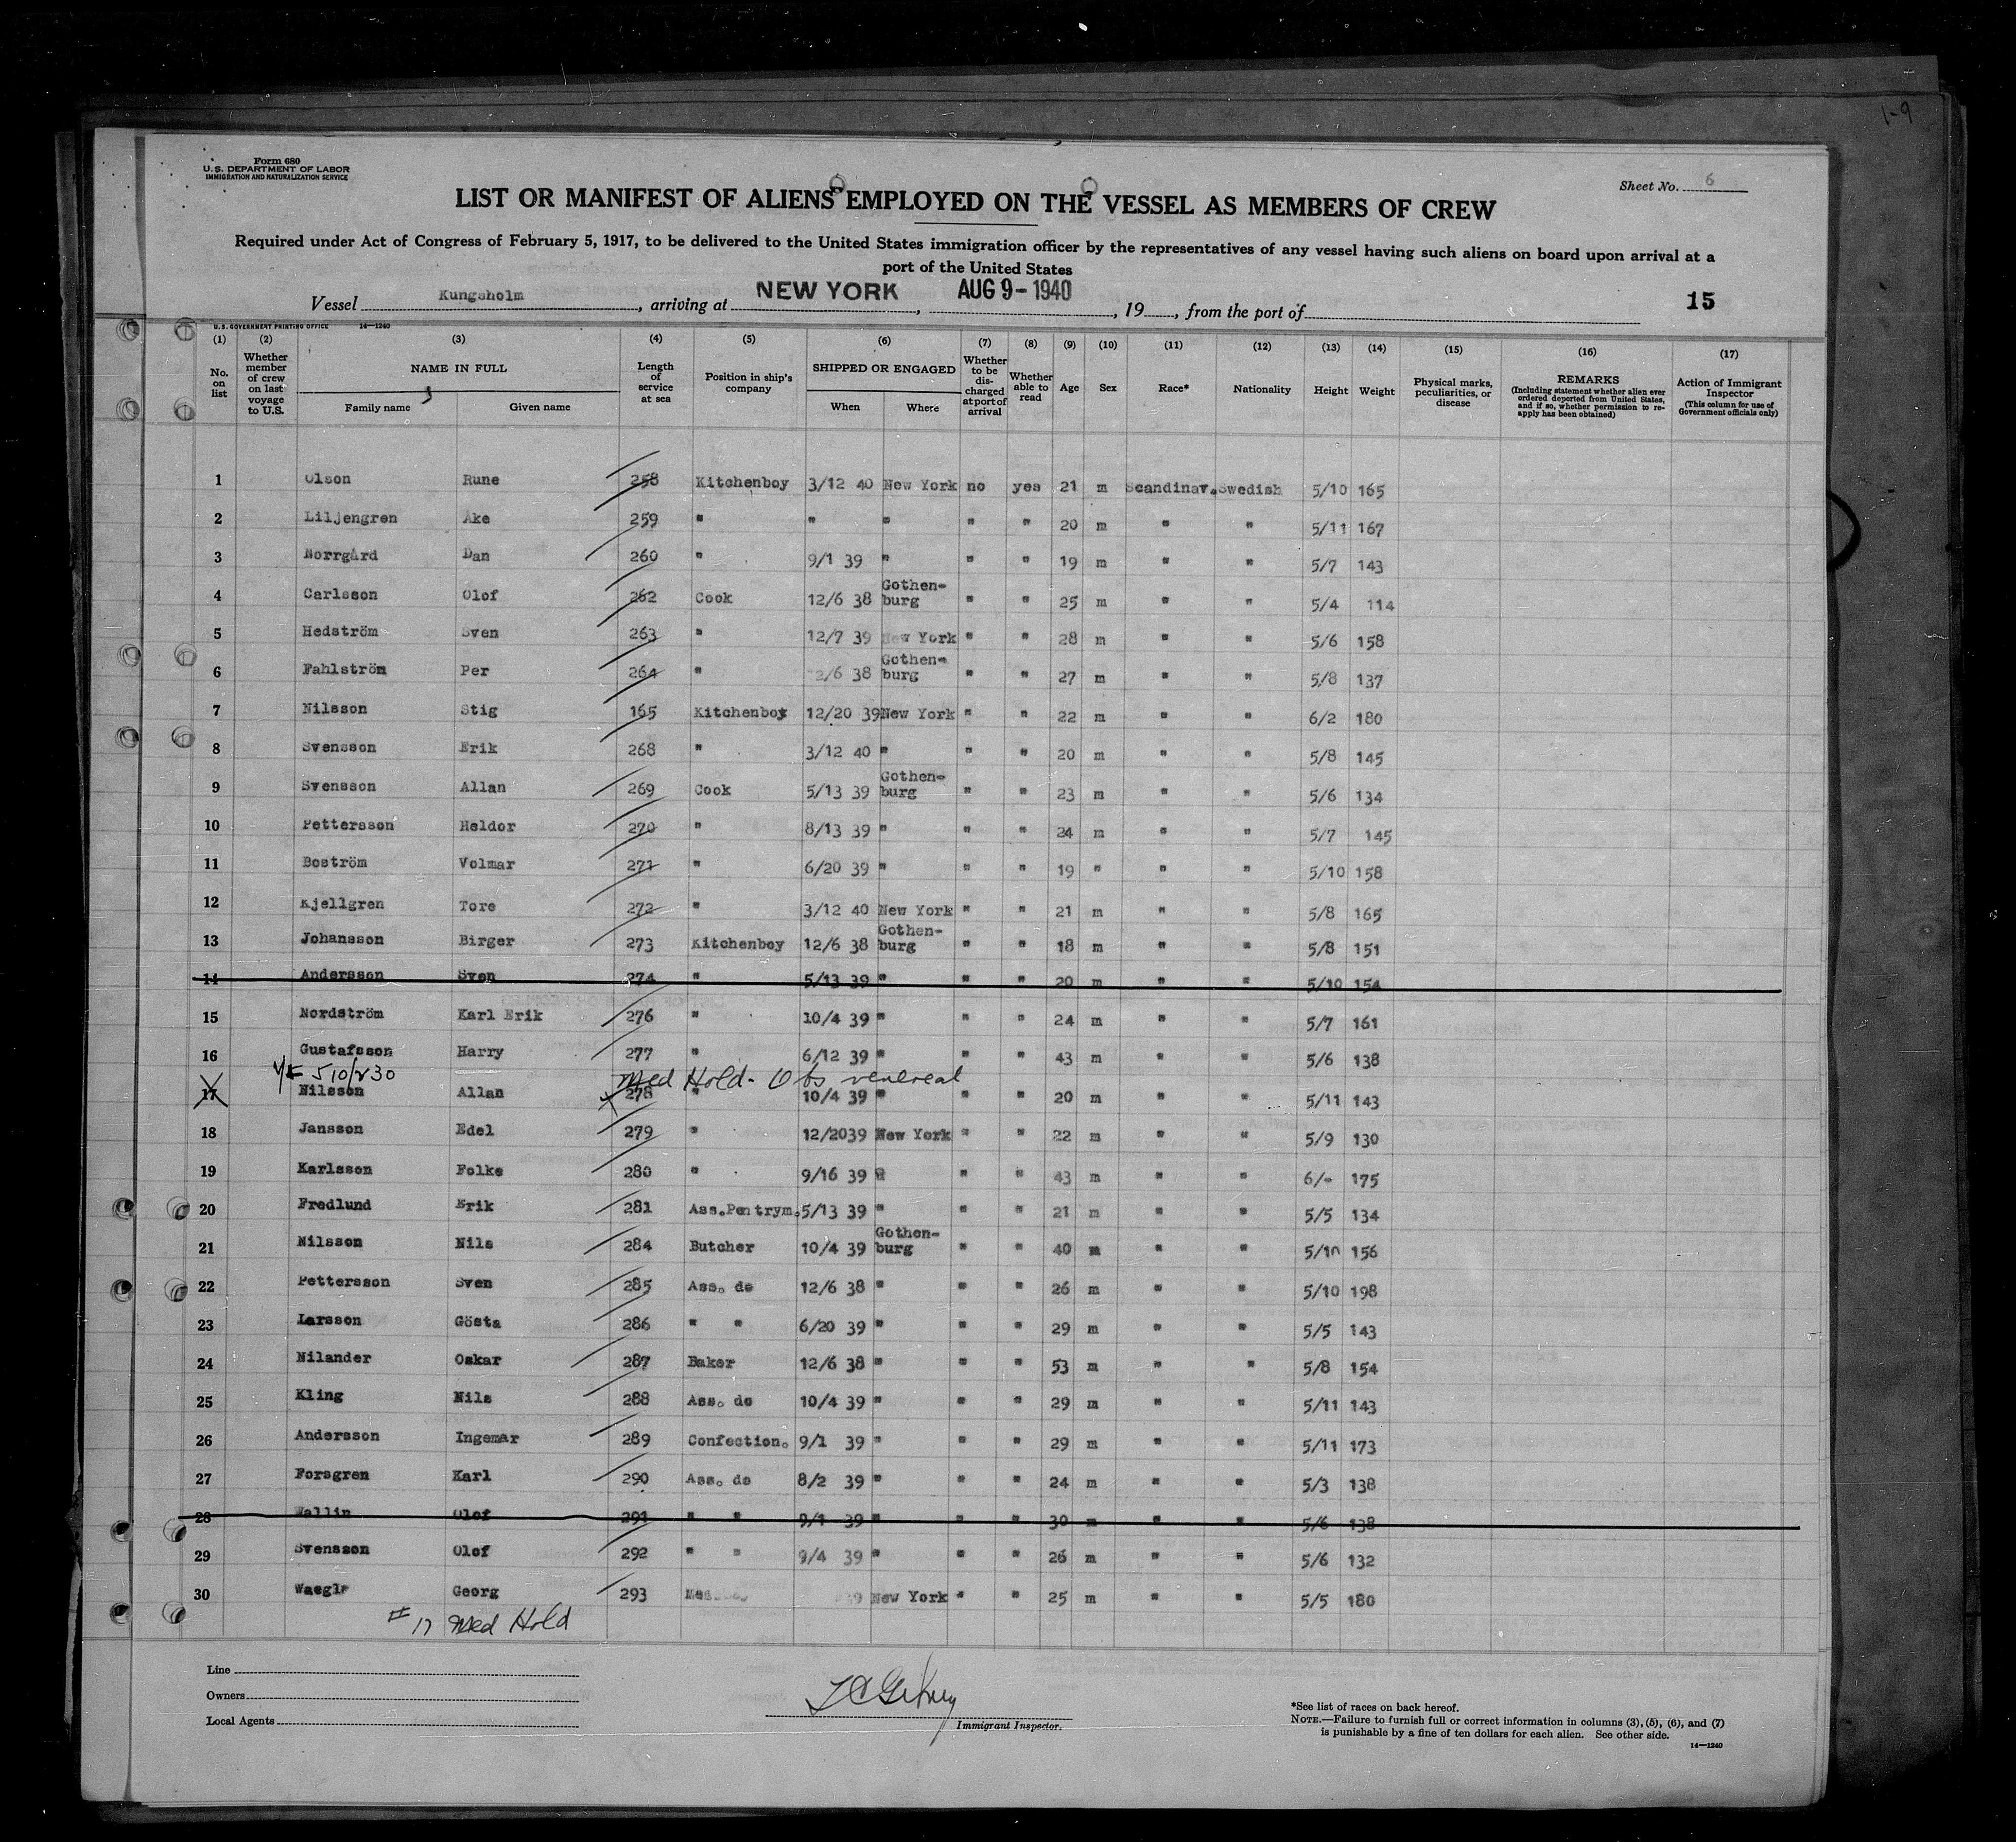 1-9
Form 680
U.S. DEPARTMENT OF LABOR
IMMIGRATION AND NATURALIZATION SERVICE
Sheet No. 6
LIST OR MANIFEST OF ALIENS EMPLOYED ON THE VESSEL AS MEMBERS OF CREW
Required under Act of Congress of February 5, 1917, to be delivered to the United States immigration officer by the representatives of any vessel having such aliens on board upon arrival at a
port of the United States
Vessel Kungsholm, arriving at NEW YORK, AUG 9-1940, 19, from the port of 15
U.S. GOVERNMENT PRINTING OFFICE 14—1240
(1) No. on list (2) Whether member of crew on last voyage to U.S. (3) NAME IN FULL Family name Given name (4) Length of service at sea (5) Position in ship's company (6) SHIPPED OR ENGAGED When Where (7) Whether to be discharged at port of arrival (8) Whether able to read (9) Age (10) Sex (11) Race* (12) Nationality (13) Height (14) Weight (15) Physical marks, peculiarities, or disease (16) REMARKS (Including statement whether alien ever ordered deported from United States, and if so, whether permission to reapply has been obtained) (17) Action of Immigrant Inspector (This column for use of Government officials only)
1 Olson Rune 258 Kitchenboy 3/12 40 New York no yes 21 m Scandinav. Swedish 5/10 165
2 Liljengren Ake 259 " " " " " 20 m " " 5/11 167
3 Norrgård Dan 260 " 9/1 39 " " " 19 m " " 5/7 143
4 Carlsson Olof 262 Cook 12/6 38 Gothen-burg " " 25 m " " 5/4 114
5 Hedström Sven 263 " 12/7 39 New York " " 28 m " " 5/6 158
6 Fahlström Per 264 " 2/6 38 Gothen-burg " " 27 m " " 5/8 137
7 Nilsson Stig 165 Kitchenboy 12/20 39 New York " " 22 m " " 6/2 180
8 Svensson Erik 268 " 3/12 40 " " " 20 m " " 5/8 145
9 Svensson Allan 269 Cook 5/13 39 Gothen-burg " " 23 m " " 5/6 134
10 Pettersson Heldor 270 " 8/13 39 " " " 24 m " " 5/7 145
11 Boström Volmar 271 " 6/20 39 " " " 19 " " " 5/10 158
12 Kjellgren Tore 272 " 3/12 40 New York " " 21 m " " 5/8 165
13 Johansson Birger 273 Kitchenboy 12/6 38 Gothen-burg " " 18 m " " 5/8 151
14 Andersson Sven 274 " 5/13 39 " " " 20 m " " 5/10 154
15 Nordström Karl Erik 276 " 10/4 39 " " " 24 m " " 5/7 161
16 Gustafsson Harry 277 " 6/12 39 " " " 43 m " " 5/6 138
Med Hold - Obs venereal
17 Nilsson Allan 278 " 10/4 39 " " " 20 m " " 5/11 143
18 Jansson Edel 279 " 12/2039 New York " " 22 m " " 5/9 130
19 Karlsson Folke 280 " 9/16 39 " " " 43 m " " 6/- 175
20 Fredlund Erik 281 Ass.Pentrym. 5/13 39 " " " 21 m " " 5/5 134
21 Nilsson Nils 284 Butcher 10/4 39 Gothen-burg " " 40 m " " 5/10 156
22 Pettersson Sven 285 Ass. do 12/6 38 " " " 26 m " " 5/10 198
23 Larsson Gösta 286 " " 6/20 39 " " " 29 m " " 5/5 143
24 Nilander Oskar 287 Baker 12/6 38 " " " 53 m " " 5/8 154
25 Kling Nils 288 Ass. do 10/4 39 " " " 29 m " " 5/11 143
26 Andersson Ingemar 289 Confection. 9/1 39 " " " 29 m " " 5/11 173
27 Forsgren Karl 290 Ass. do 8/2 39 " " " 24 m " " 5/3 138
28 Wallin Olof 291 " " 9/1 39 " " " 30 m " " 5/6 138
29 Svensson Olof 292 " " 9/4 39 " " " 26 m " " 5/6 132
30 Waegle Georg 293 39 New York " " 25 m " " 5/5 180
# 17 Med Hold
Line
Owners
Local Agents
Immigrant Inspector.
*See list of races on back hereof.
NOTE.—Failure to furnish full or correct information in columns (3), (5), (6), and (7)
is punishable by a fine of ten dollars for each alien. See other side.
14—1240